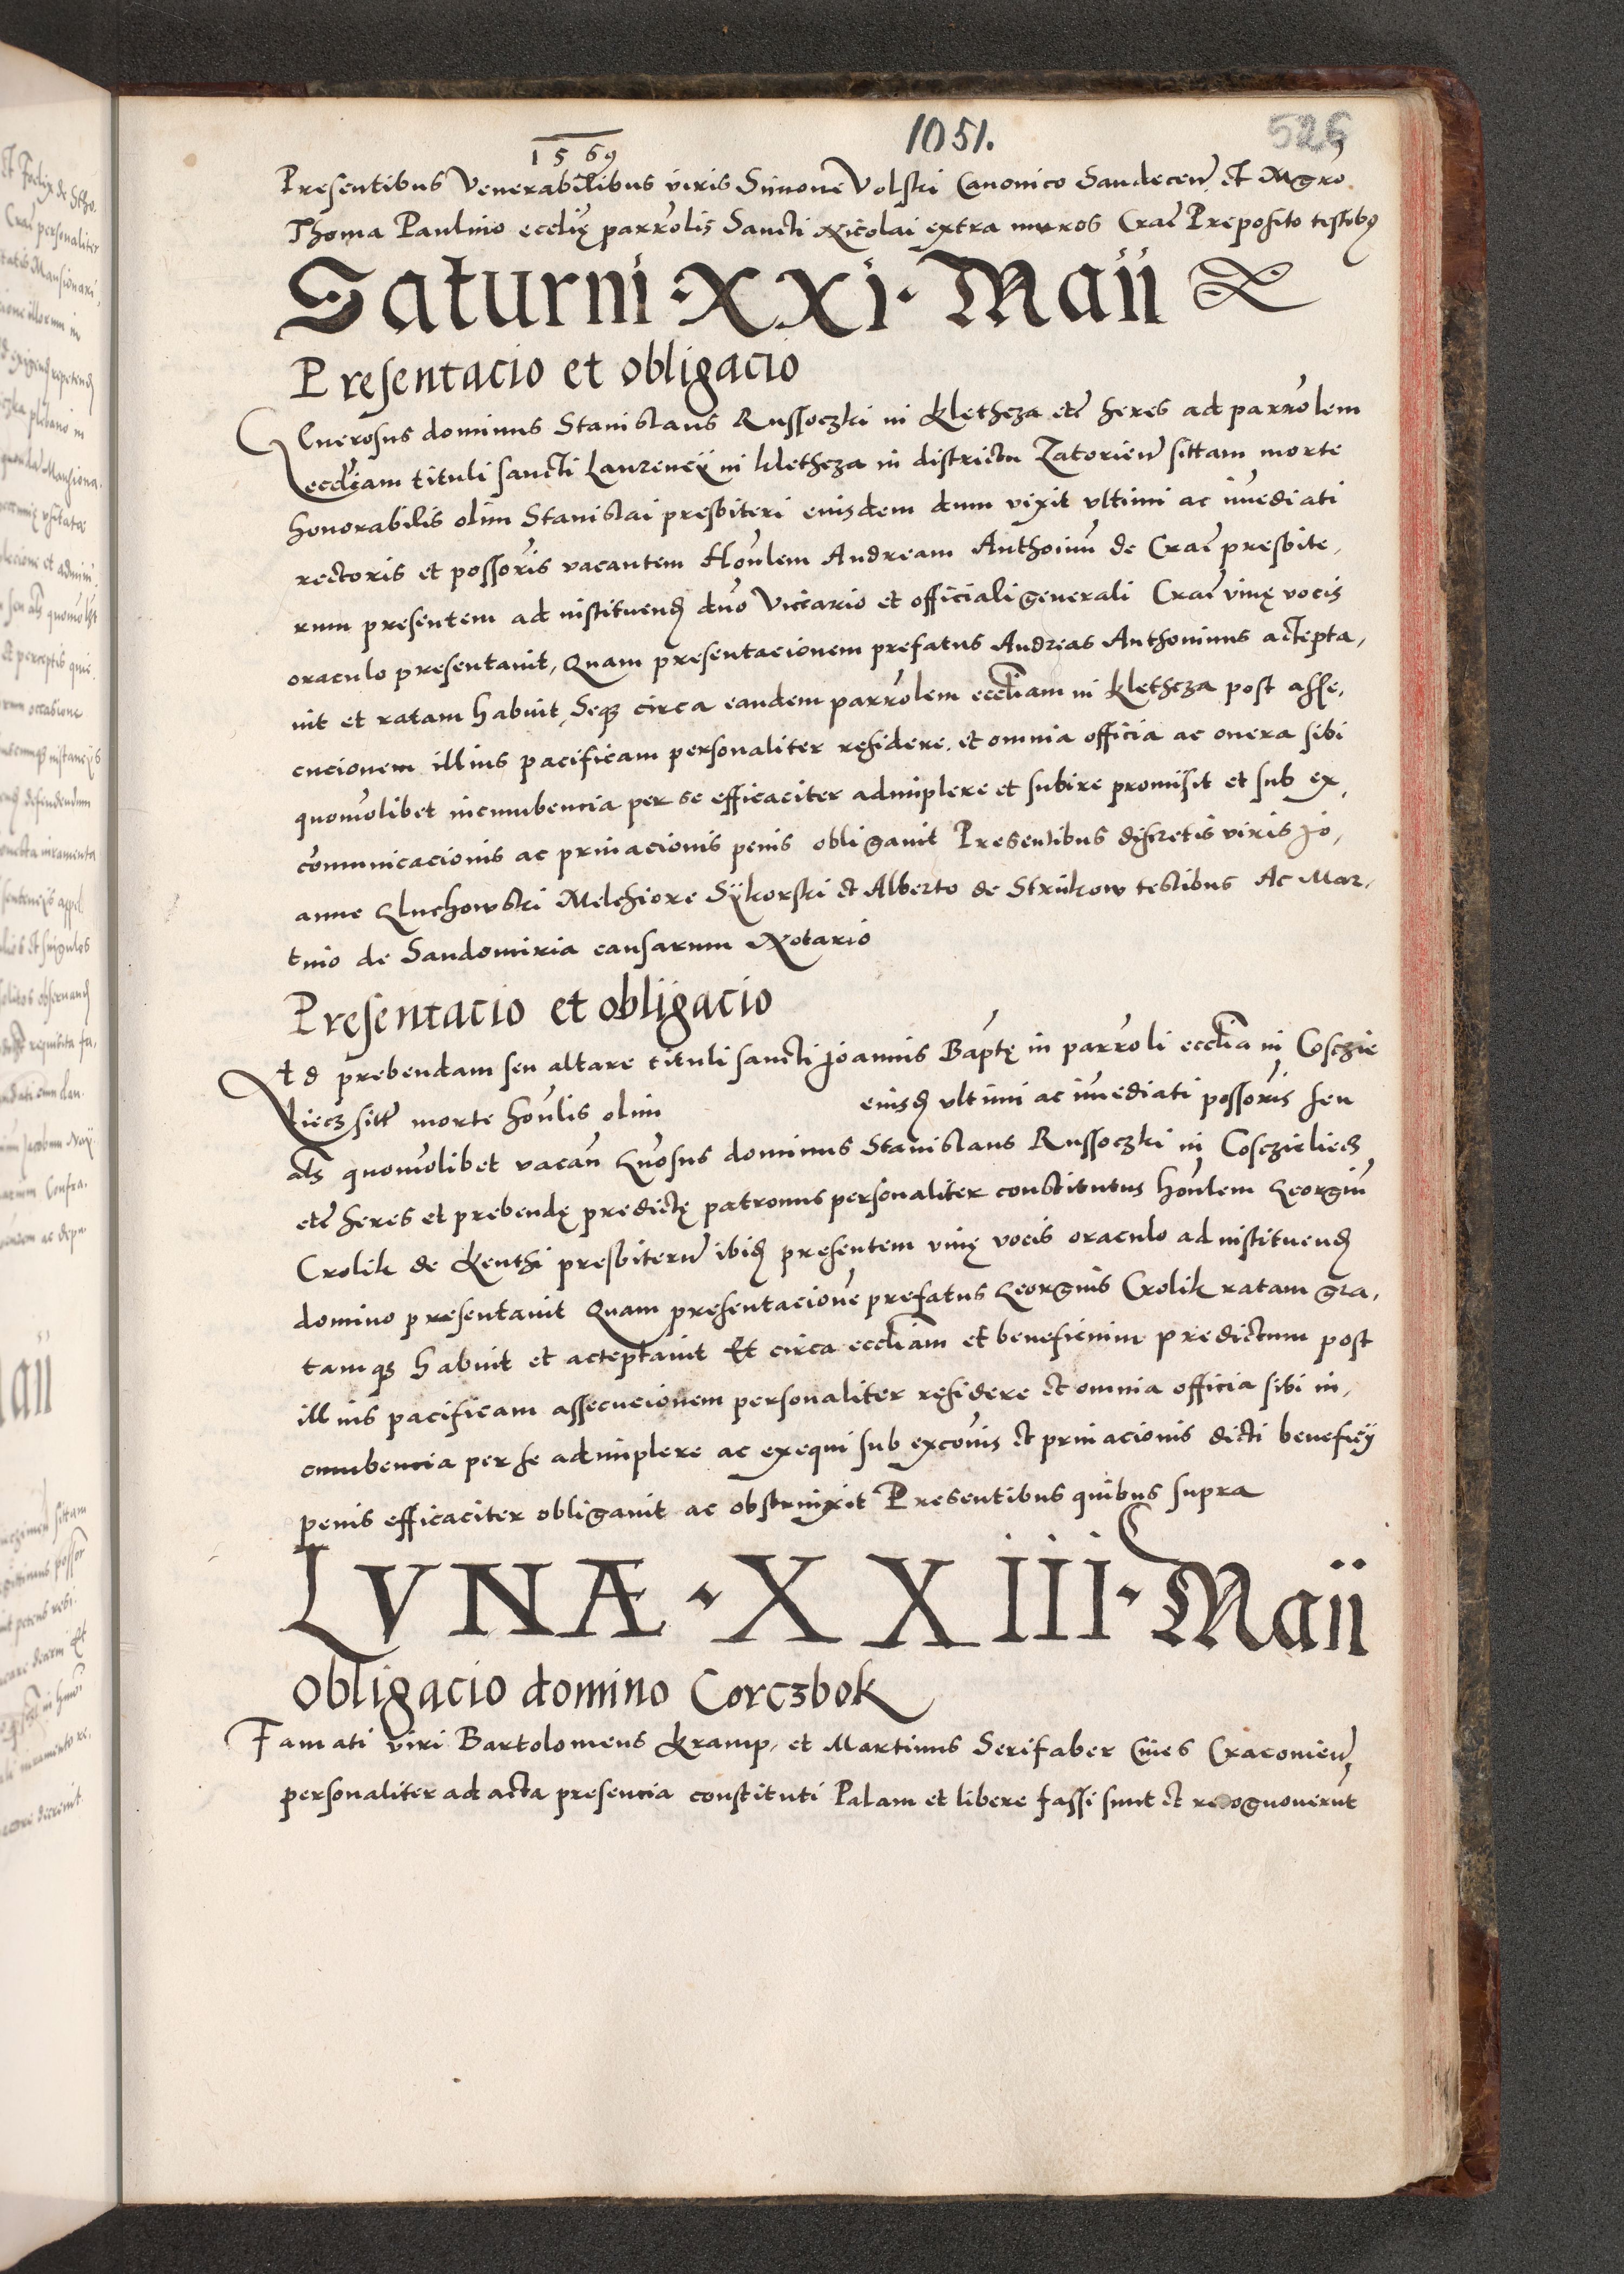 1569
1051.
526
Presentibus Venerabilibus viris Simone Volski Canonico Sandecen et Mgro
Thoma Paulino ecclię parrolis Sancti Nicolai extra muros Crac Preposito testibus
Saturni · XXI · Maii
Presentacio et obligacio
Generosus dominus Stanislaus Russoczki in Kletheza etc heres ad parrolem
eccliam tituli sancti Laurencii in Kletheza in districtu Zatorien sittam morte
honorabilis olim Stanislai presbiteri eiusdem dum vixit vltimi ac imediati
rectoris et possoris vacantem Honlem Andream Anthoinu de Crac presbite,
rum presentem ad instituend dno Vicario et officiali generali Crac vinę vocis
oraculo presentauit, Quam presentacionem prefatus Andreas Anthoninus accepta,
uit et ratam habuit, Seq circa eandem parrolem eccliam in Kletheza post asse,
cucionem illius pacificam personaliter residere et omnia officia ac onera sibi
quomolibet incumbencia per se efficaciter adimplere et subire promisit et sub ex,
comunicacionis ac priuacionis penis obligauit Presentibus discretis viris Jo,
anne Gluchowski Melchiore Sÿkorski et Alberto de Strikow testibus Ac Mar,
tino de Sandomiria causarum Notario
Presentacio et obligacio
Ad prebendam seu altare tituli sancti Joannis Baptę in parroli ecclia in Coschie
liecz sitt morte honlis olim eiusd vltimi ac imediati possoris seu
als quomolibet vacan Gnosus dominus Stanislaus Russoczki in Cosczieliecz
etc heres et prebendę predictę patronus personaliter constitutus honlem Georgiu
Crolik de Kenthi presbiteru ibid presentem vinę vocis oraculo ad instituend
domino presentauit Quam presentacione prefatus Georgius Crolik ratam gra,
tamq habuit et acceptauit Et circa eccliam et beneficium predictum post
illius pacificam assecucionem personaliter residere et omnia officia sibi in,
cumbencia per se adimplere ac exequi sub excomis et priuacionis dicti beneficÿ
penis efficaciter obligauit ac obstrinxit Presentibus quibus supra
LVNÆ · XXIII · Maii
Obligacio domino Corczbok
Famati viri Bartolomeus Kramp, et Martinus Serifaber Ciues Cracouien
personaliter ad acta presencia constituti Palam et libere fassi sunt et recognouerut